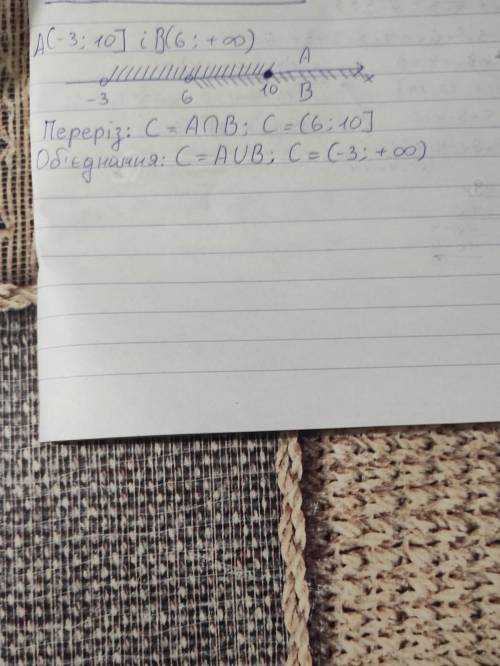 A(-3; 10] і B(6; +∞)
A
-3 6 10 B x
Переріз: C = A∩B; C = (6; 10]
Об'єднання: C = A∪B; C = (-3; +∞)